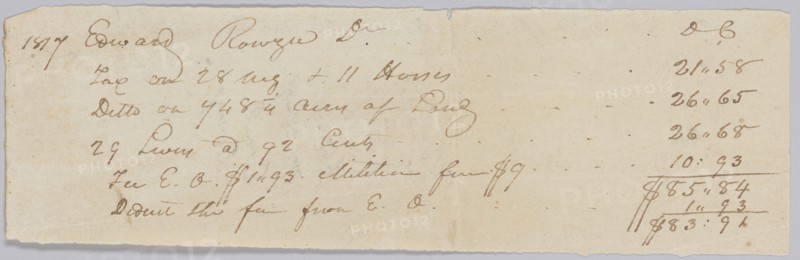 1817 Edward Rowzee Dr D C
Tax on 28 neg & 11 Horses 21〃58
Ditto on 748 acres of Land 26〃65
29 Levies @ 92 Cents 26〃68
Fee E. O. $1〃93. Militia fine $9 10: 93
$85〃84
Deduct the fee from E. O. 1〃93
$83: 91